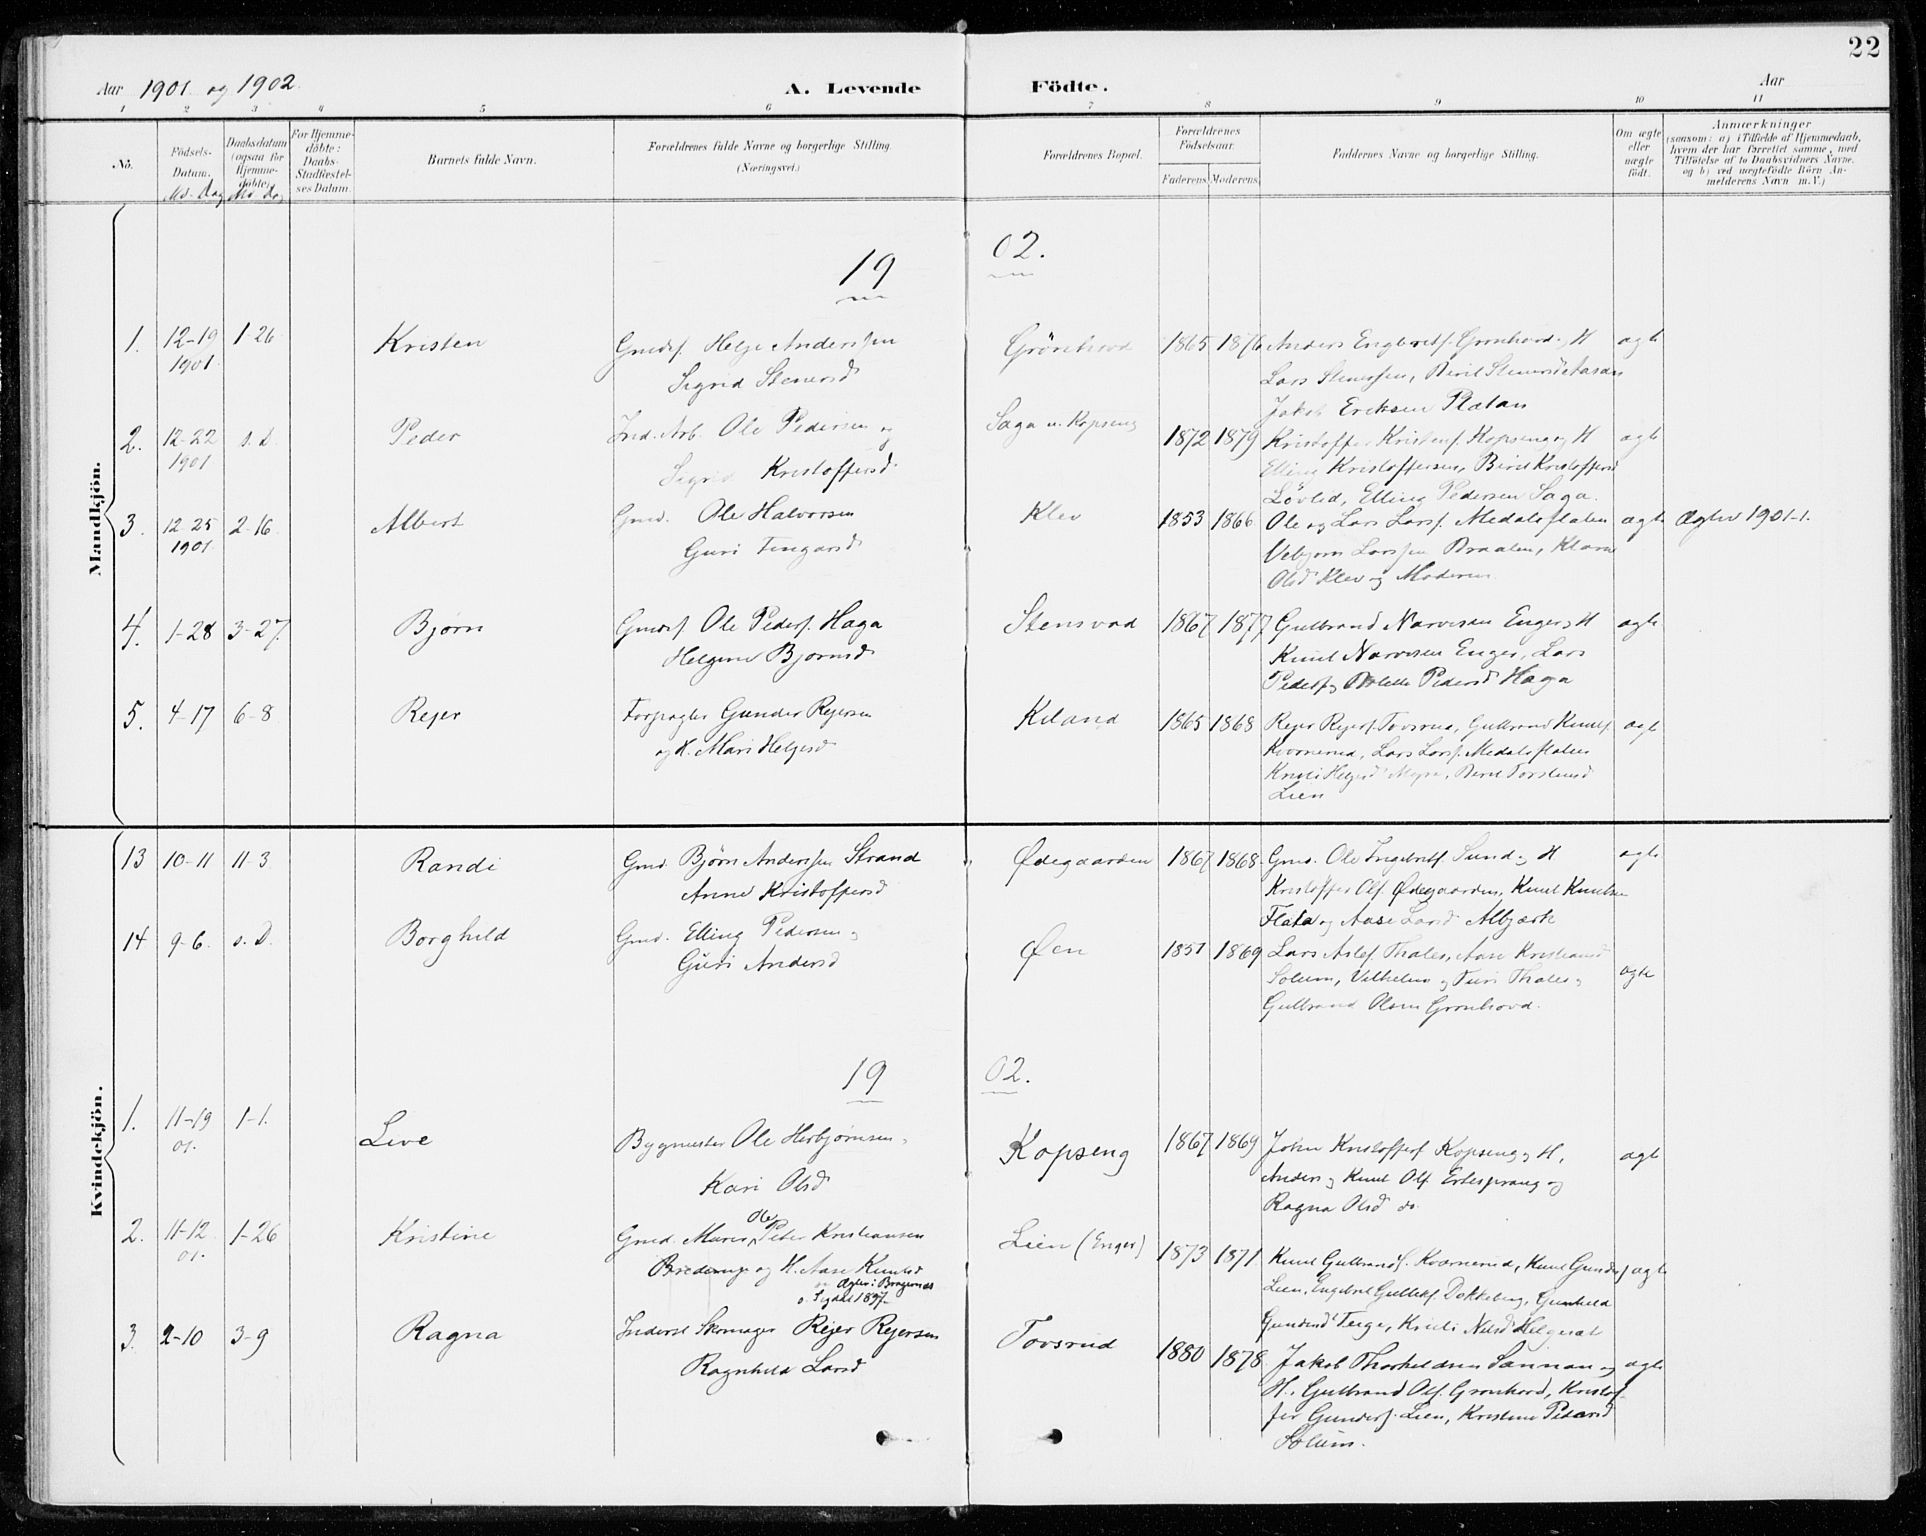 22
Aar 1901 og 1902.
A. Levende Födte.
Aar
1 2 3 4 5 6 7 8 9 10 11
No.
Födsels-Datum.
Md. Dag
Daabsdatum (ogsaa for Hjemme-döbte)
Md. Dag
For Hjemme-döbte: Daabs-Stadfæstelses Datum.
Barnets fulde Navn.
Forældrenes fulde Navne og borgerlige Stilling.
(Næringsvei.)
Forældrenes Bopæl.
Forældrenes Födselsaar.
Faderens Moderens
Faddernes Navne og borgerlige Stilling.
Om ægte eller uægte födt.
Anmærkninger
(saasom: a) i Tilfælde af Hjemmedaab,
hvem der har forrettet samme, med
Tilföielse af to Daabsvidners Navne,
og b) ved uægtefödte Börn An-
melderens Navn m.V.)
Mandkjön.
1902.
1. 12-19 1901. 1-26 Kristen
Gmdsf. Helge Anderssen
Sigrid Stenersd
Grönhovd 1865 1876
Anders Engbretsf. Grönhovd H
Lars Stenersen, Berit Stenersd
Jakob Eriksen Platan
ægte
2. 12-22 1901 s.D. Peder
Ind. Arb. Ole Pedersen og
Sigrid Kristoffersd
Saga u. Kopseng 1872 1879
Kristoffer Kristenf. Kopseng og H
Elling Kristoffersen, Berit Kristoffersd
Lövlid, Elling Pedersen Saga.
ægte
3. 12 25 1901. 2-16 Albert
Gmd. Ole Halvorsen
Guri Tengersd
Klev 1853 1866
Ole og Lars Larsf. Medalsflaten
Vebjørn Larssen Braaten, Klara
Olsd Klev og Moderen
ægte
Ægtev 1901-1.
4. 1-28 3-27. Bjørn
Gmdsf Ole Pedersf. Haga
Helgine Bjørnsd
Stensvad 1867 1877
Gulbrand Narvesen Enger og H
Knut Narvesen Enger, Lars
Pedersf og Pedersd Haga
ægte
5. 4-17 6-8 Rejer
Forpagter Gunder Rejersen
og H. Mari Helgesd
Kiland 1865 1868
Rejer Rejersf. Tovsrud, Gulbrand Knutsf.
Kvernerud, Lars Larsf. Medalsflaten
Kristi Helgesd Myra, Berit Torstensd
Lien
ægte
Kvindekjön.
13 10-11 11-3 Randi
Gmd. Bjørn Anderssen Strand
Anne Kristoffersd
Ødegaarden 1867 1868
Gmd. Ole Ingebretsf. Sund og H
Kristoffer Olsf. Ødegaarden, Knut Knutsen
Flata og Aase Larsd Albjærk
ægte
14 9-6. s.D. Borghild
Gmd. Elling Pedersen og
Guri Andersd
Øen 1857 1869
Lars Aslef. Thales, Aase Kristiansd
Solum, Vilhelm og Turi Thales og
Gulbrand Olsen Grønhovd.
ægte
1902.
1. 11-19 01. 1-1. Live
Bygmester Ole Herbjørnsen,
Kari Olsd
Kopseng 1867 1869
John Kristoffersf Kopseng og H.
Anders og Knut Olsf. Ertesprang og
Ragna Olsd ds.
ægte
2. 11-12 01. 1-26 Kristine
Gmd. Marius Ole Peter Kristiansen
Brederup og H. Aase Knutsd
Ægtev. i Bragernes
o. Sigdal 1897.
Lien (Enger) 1873 1871.
Knut Gulbrandsf. Kvernerud, Knut Gundersf
Lien, Engebret Gulliksf. Dokkeberg, Gunhild
Gundersd Teige, Kristi Nilsd Helgeset
ægte
3. 2-10 3-9 Ragna
Inderst Skomager Rejer Rejersen
Ragnhild Larsd
Tovsrud 1880 1878.
Jakob Thorkildsen Sannan og
H. Gulbrand Olsf. Grønhovd, Kristof-
fer Gundersf. Lien, Kristine Pedersd
Solum.
ægte